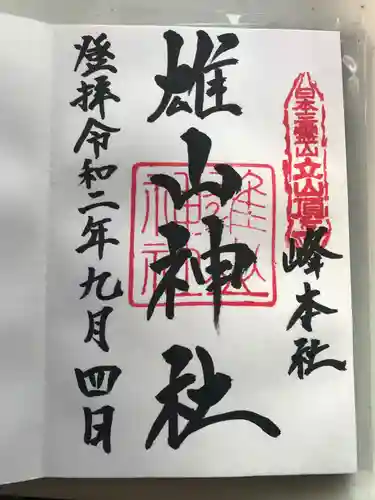 日本三霊山立山頂上
峰本社
雄山神社
登拝令和二年九月四日